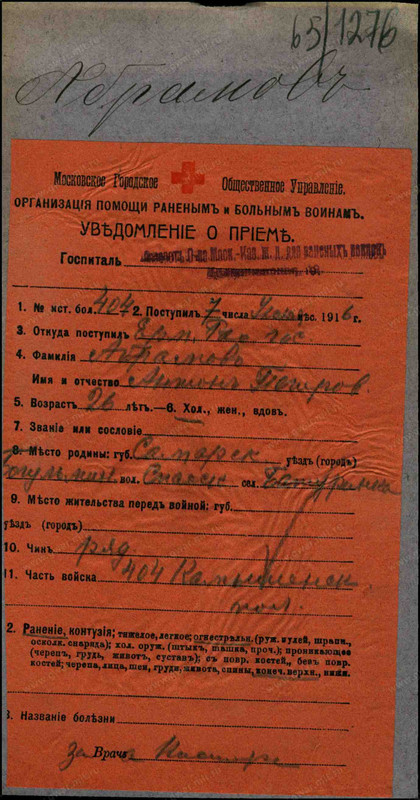 65/1276
Абрамовъ
Московское Городское Общественное Управленіе.
ОРГАНИЗАЦІЯ ПОМОЩИ РАНЕНЫМЪ и БОЛЬНЫМЪ ВОИНАМЪ.
УВѢДОМЛЕНІЕ О ПРІЕМѢ.
Госпиталь
1. № ист. бол. 404 2. Поступил 7 числа мѣс. 1916 г.
3. Откуда поступил
4. Фамилія Абрамовъ
Имя и отчество Антонъ Петров.
5. Возрастъ 26 лѣтъ.—6. Хол., жен., вдовъ.
7. Званіе или сословіе
8. Мѣсто родины: губ. Самарск уѣздъ (городъ)
Бугульмин вол. Спасск сел.
9. Мѣсто жительства передъ войной: губ.
уѣздъ (городъ)
10. Чинъ ряд
11. Часть войска 404 Камышинск
пол.
2. Раненіе, контузія; тяжелое, легкое; огнестрѣльн. (руж. пулей, шрапн.,
осколк. снаряда); хол. оруж. (штыхъ, шашка, проч.); проникающее
(черепъ, грудь, животъ, суставъ); съ повр. костей, безъ повр.
костей; черепа, лица, шеи, груди, живота, спины, конеч. верхн., нижн.
3. Названіе болѣзни
за Врача